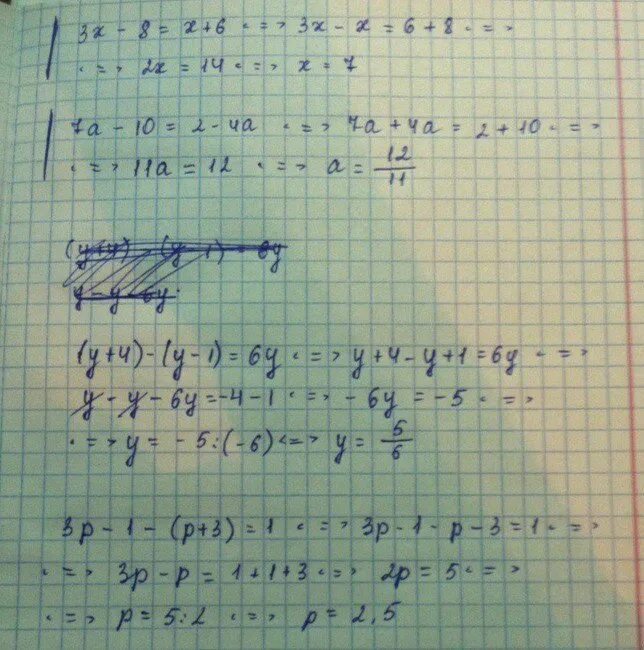 3x - 8 = x + 6 <=> 3x - x = 6 + 8 <=>
<=> 2x = 14 <=> x = 7
7a - 10 = 2 - 4a <=> 7a + 4a = 2 + 10 <=>
<=> 11a = 12 <=> a = 12/11
(y+4) - (y-1) = 6y
y - y 6y
(y+4) - (y-1) = 6y <=> y+4-y+1=6y <=>
y - y - 6y = -4 - 1 <=> -6y = -5 <=>
<=> y = -5:(-6) <=> y = 5/6
3p - 1 - (p+3) = 1 <=> 3p - 1 - p - 3 = 1 <=>
<=> 3p - p = 1+1+3 <=> 2p = 5 <=>
<=> p = 5:2 <=> p = 2,5